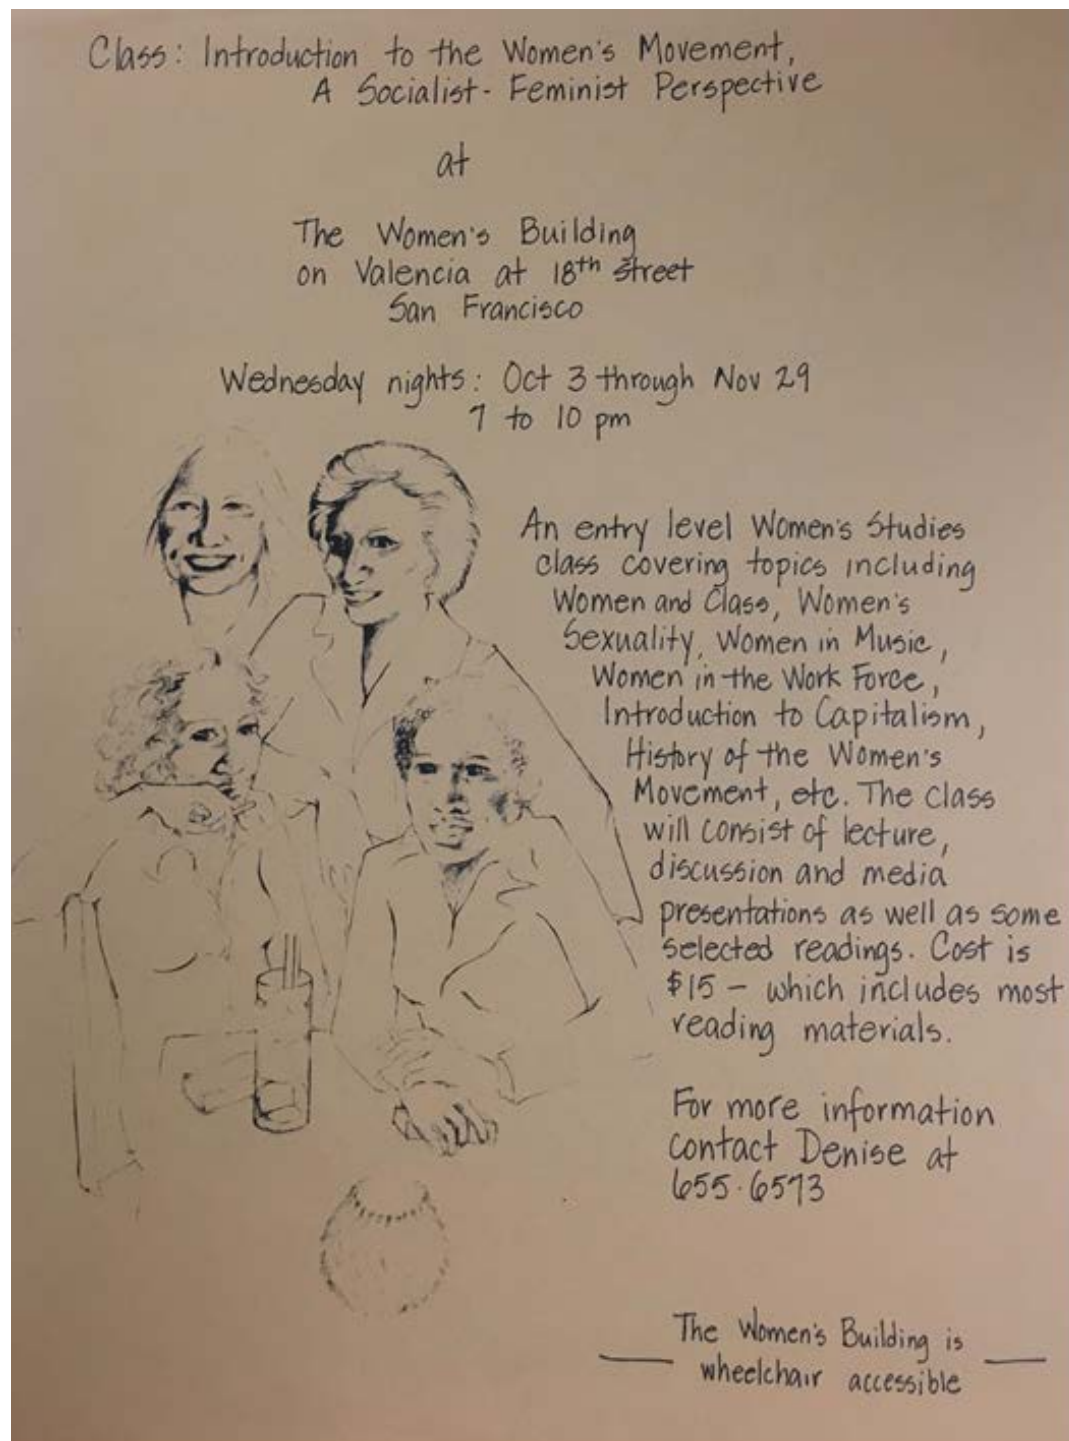 Class: Introduction to the Women's Movement,
A Socialist-Feminist Perspective
at
The Women's Building
on Valencia at 18th Street
San Francisco
Wednesday nights: Oct 3 through Nov 29
7 to 10 pm
An entry level Women's Studies
class covering topics including
Women and Class, Women's
Sexuality, Women in Music,
Women in the Work Force,
Introduction to Capitalism,
History of the Women's
Movement, etc. The class
will consist of lecture,
discussion and media
presentations as well as some
selected readings. Cost is
$15 – which includes most
reading materials.
For more information
contact Denise at
655-6573
The Women's Building is
wheelchair accessible